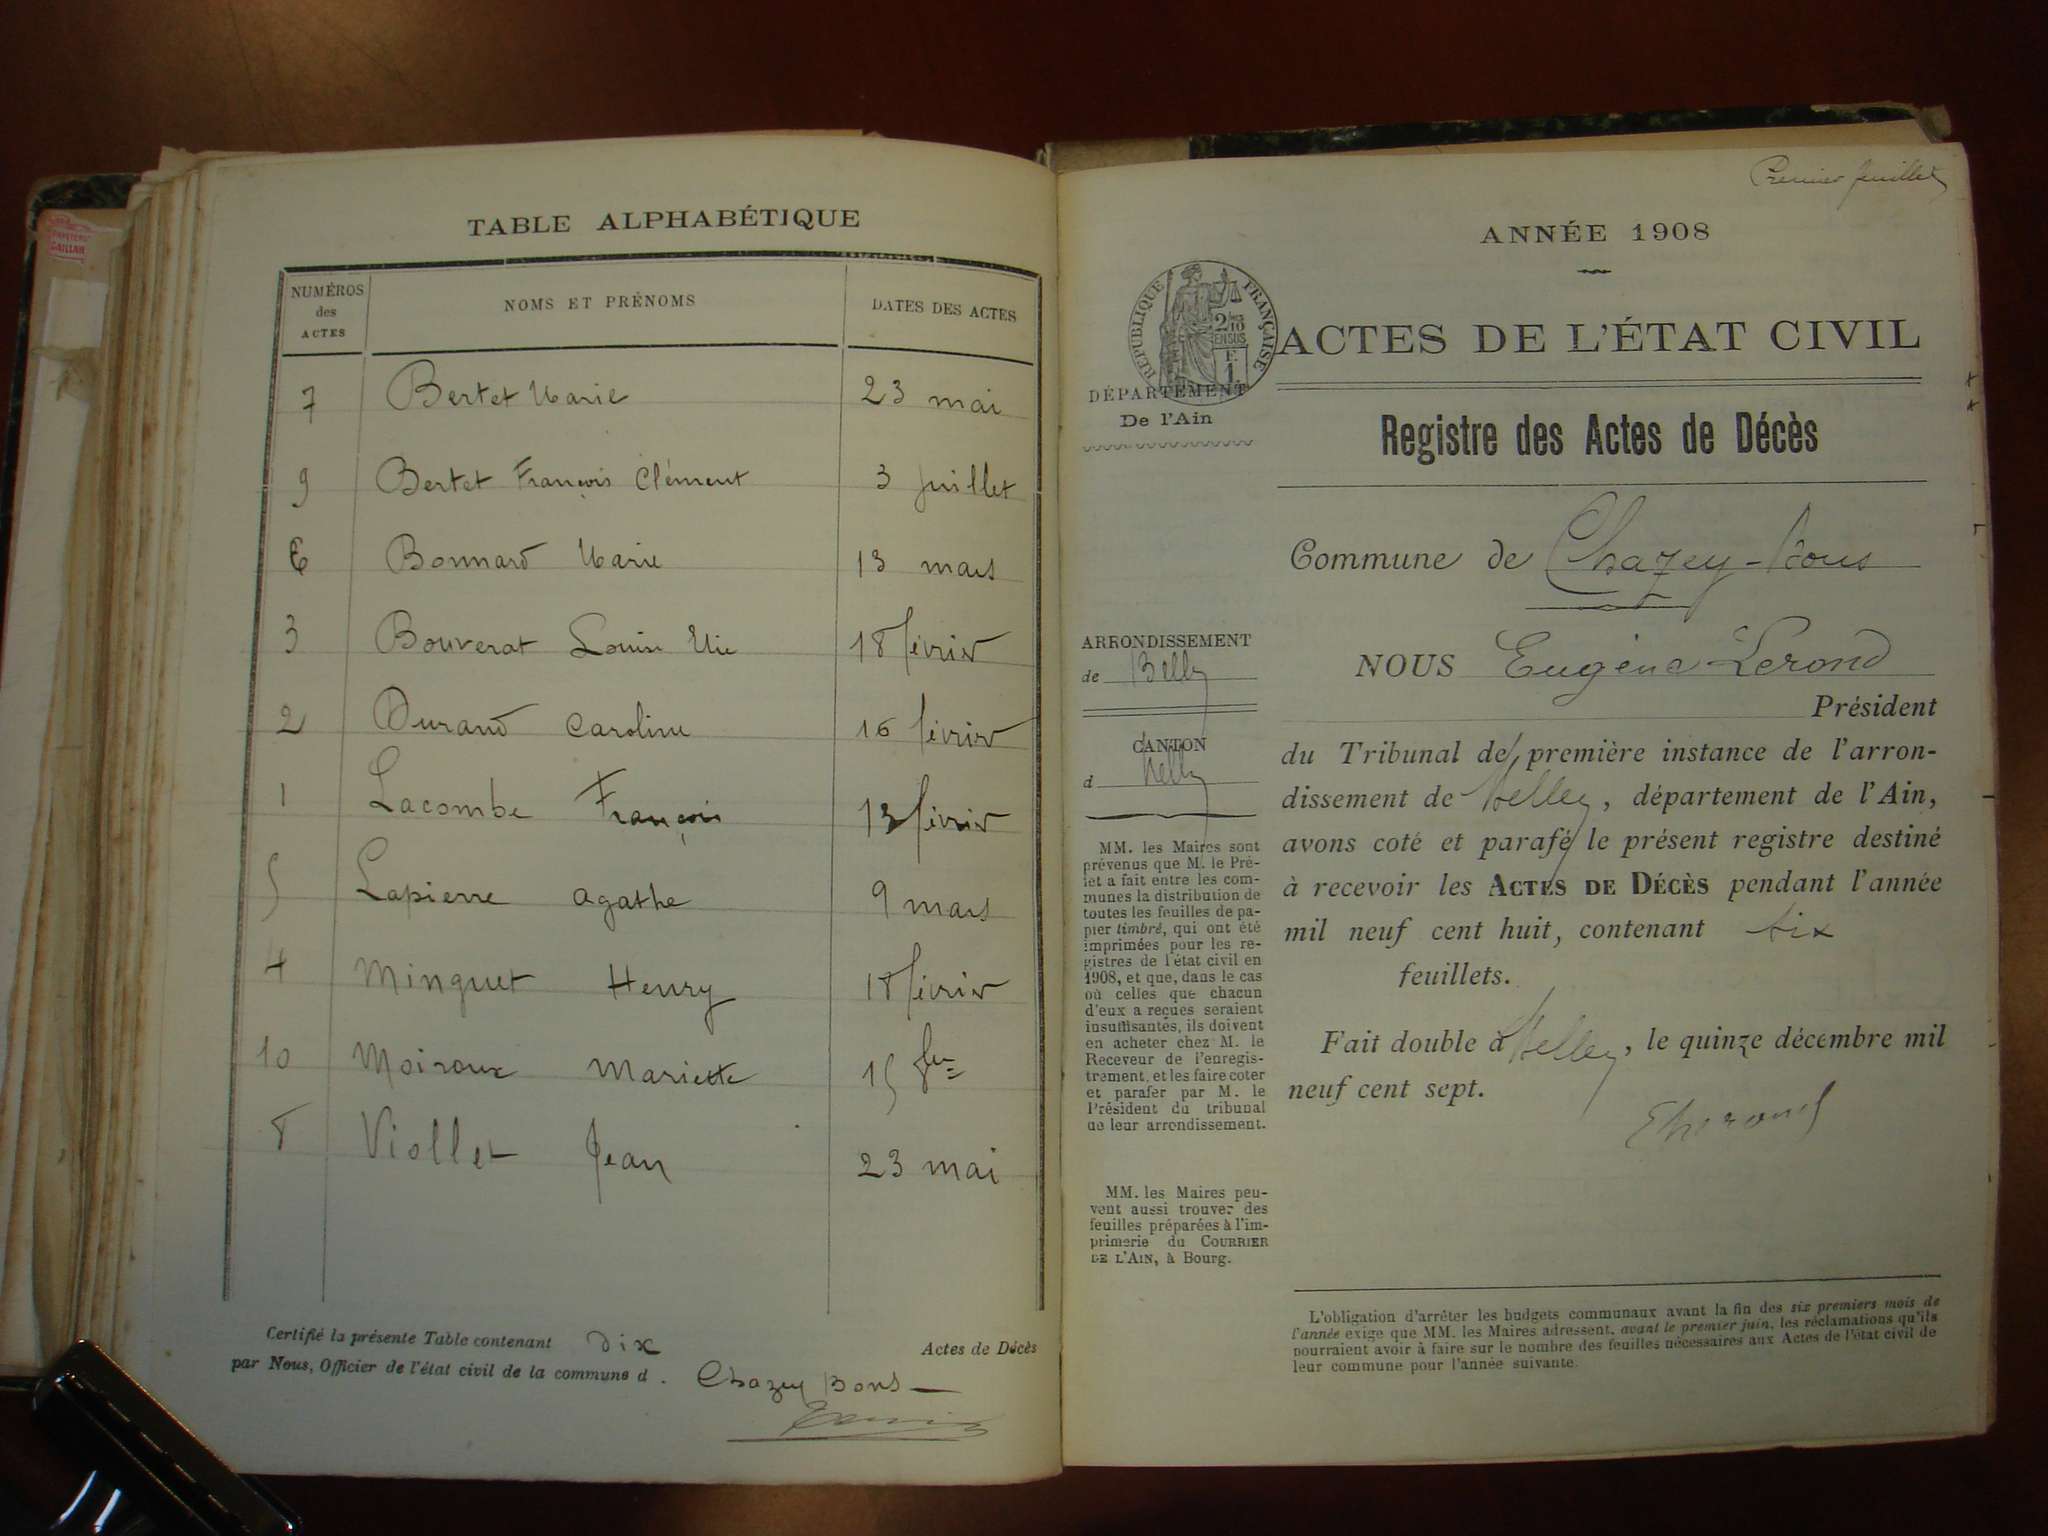 TABLE ALPHABÉTIQUE
NUMÉROS des ACTES
NOMS ET PRÉNOMS
DATES DES ACTES
7 Bertet Marie 23 mai
9 Bertet François Clément 3 juillet
6 Bonnard Marie 13 mars
3 Bouverat Louise 18 février
2 Durand Caroline 16 février
1 Lacombe François 13 février
5 Lapierre Agathe 9 mars
4 Minguet Henry 18 février
10 Moiroux Mariette 15
8 Viollet Jean 23 mai
Certifié la présente Table contenant dix Actes de Décès
par Nous, Officier de l'état civil de la commune d Chazey Bons
Premier feuillet
ANNÉE 1908
RÉPUBLIQUE FRANÇAISE
2/10
EN SUS
F.
1
ACTES DE L'ÉTAT CIVIL
DÉPARTEMENT
De l'Ain
Registre des Actes de Décès
Commune de Chazey-Bons
ARRONDISSEMENT
de Belley
CANTON
d Belley
MM. les Maires sont
prévenus que M. le Pré-
fet a fait entre les com-
munes la distribution de
toutes les feuilles de pa-
pier timbré, qui ont été
imprimées pour les re-
gistres de l'état civil en
1908, et que, dans le cas
où celles que chacun
d'eux a reçues seraient
insuffisantes, ils doivent
en acheter chez M. le
Receveur de l'enregis-
trement, et les faire coter
et parafer par M. le
Président du tribunal
de leur arrondissement.
MM. les Maires peu-
vent aussi trouver des
feuilles préparées à l'im-
primerie du COURRIER
DE L'AIN, à Bourg.
NOUS Eugène Lerond
Président
du Tribunal de première instance de l'arron-
dissement de Belley, département de l'Ain,
avons coté et parafé le présent registre destiné
à recevoir les ACTES DE DÉCÈS pendant l'année
mil neuf cent huit, contenant six
feuillets.
Fait double à Belley, le quinze décembre mil
neuf cent sept.
L'obligation d'arrêter les budgets communaux avant la fin des six premiers mois de
l'année exige que MM. les Maires adressent, avant le premier juin, les réclamations qu'ils
pourraient avoir à faire sur le nombre des feuilles nécessaires aux Actes de l'état civil de
leur commune pour l'année suivante.